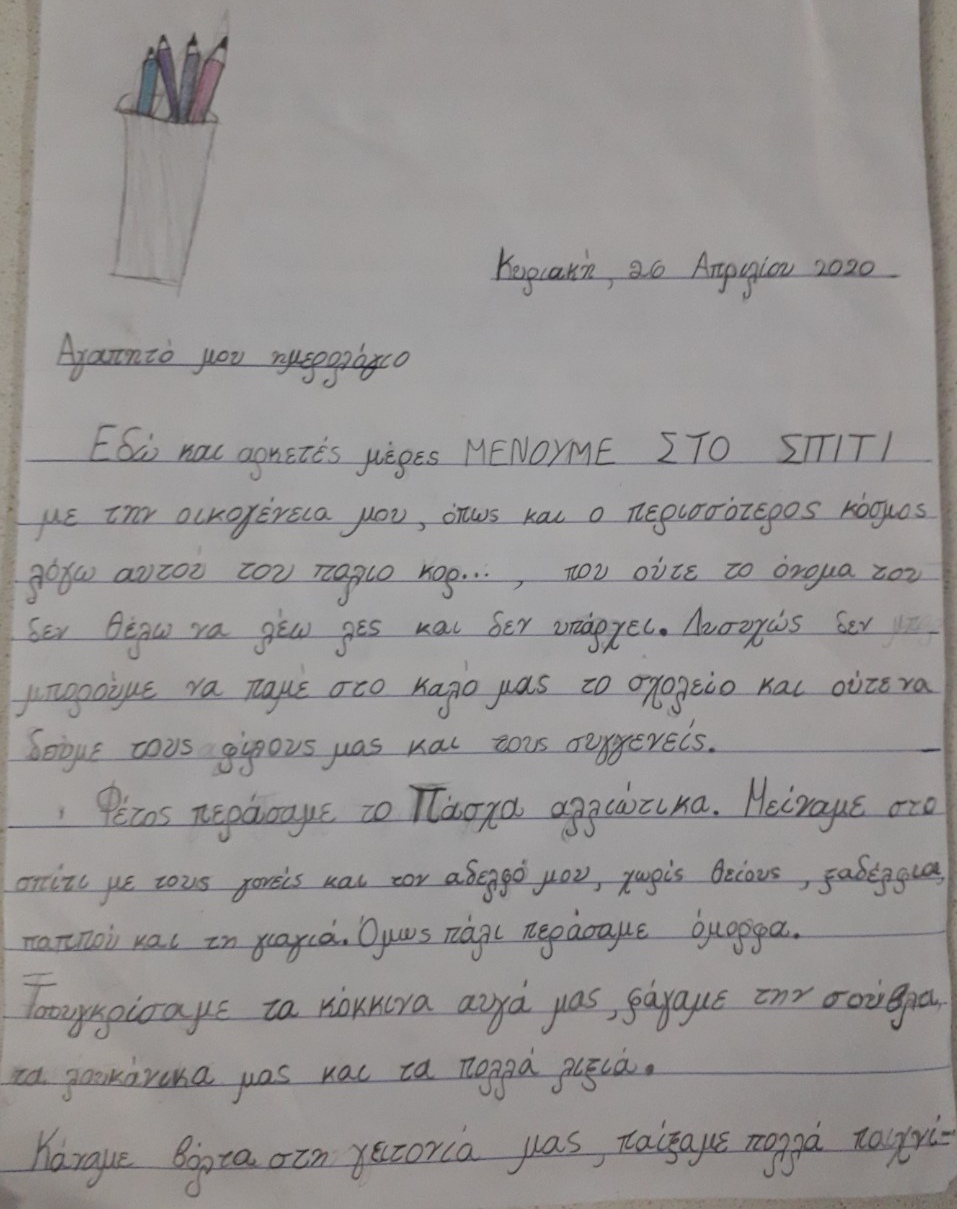 Κυριακή, 26 Απριλίου 2020
Αγαπητό μου ημερολόγιο
Εδώ και αρκετές μέρες ΜΕΝΟΥΜΕ ΣΤΟ ΣΠΙΤΙ
με την οικογένεια μου, όπως και ο περισσότερος κόσμος
λόγω αυτού του παλιο κορ..., που ούτε το όνομα του
δεν θέλω να λέω λες και δεν υπάρχει. Δυσυχώς δεν
μπορούμε να παμέ στο καλό μας το σχολείο και ούτε να
δούμε τους φίλους μας και τους συγγενείς.
Φέτος περάσαμε το Πάσχα αλλιώτικα. Μείναμε στο
σπίτι με τους γονείς και τον αδελφό μου, χωρίς θείους, ξαδέλφια,
παππού και τη γιαγιά. Όμως πάλι περάσαμε όμορφα.
Τσουγκρίσαμε τα κόκκινα αυγά μας, φάγαμε την σούβλα,
τα λουκάνικα μας και τα πολλά
Κάναμε βόλτα στη γειτονιά μας, παίξαμε πολλά παιχνί-